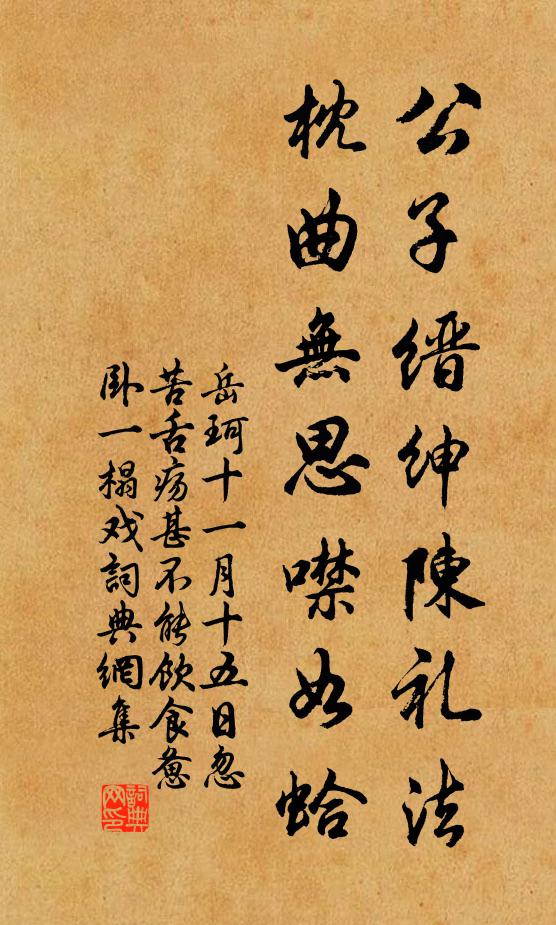 公子缙绅陳礼法
枕曲無思噤如蛤
岳珂十一月十五日忽
苦舌疡甚不能飲食惫
卧一榻戏詞典網集
詞典
网印